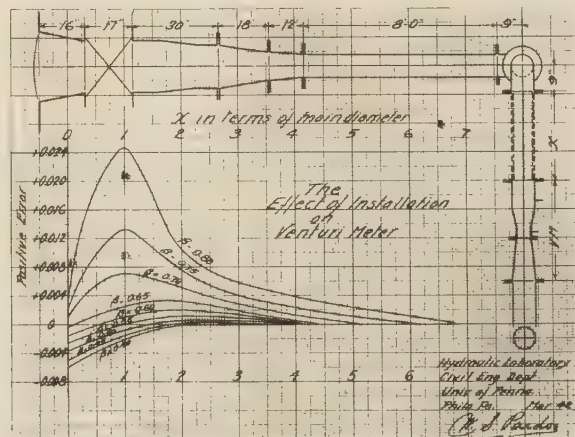 16" 17" 30" 18" 12" 8'-0" 9"
X in terms of main diameter
0 1 2 3 4 5 6 7
9"
X
VM
+0.024
+0.020
+0.016
+0.012
+0.008
+0.004
0
-0.004
-0.008
Positive Error
The
Effect of Installation
on
Venturi Meter
β=0.80
β=0.75
β=0.70
β=0.65
β=0.60
0 1 2 3 4 5 6
Hydraulic Laboratory
Civil Eng Dept
Univ of Penna
Phila Pa Mar 42
W. S. Pardoe